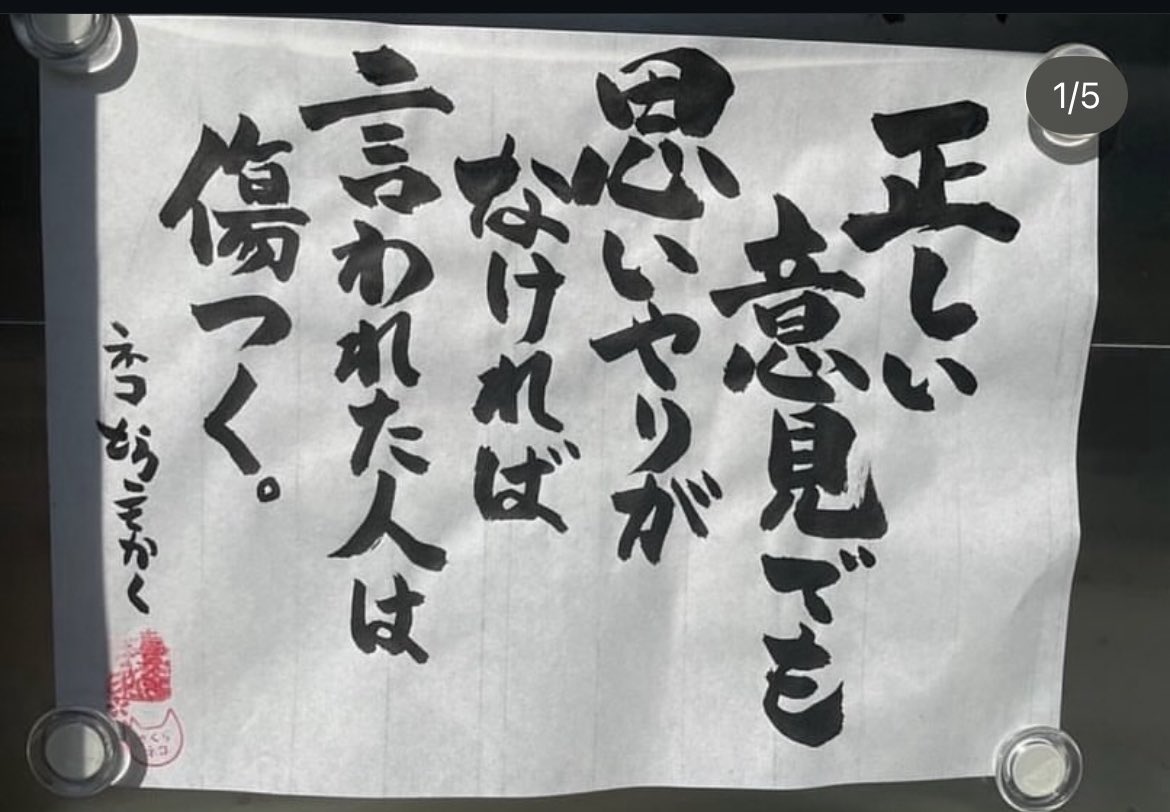 正しい
意見でも
思いやりが
なければ
言われた人は
傷つく。
ネコ
かく
1/5
ネコ